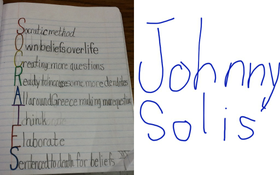 Socratic method
Own beliefs over life
Creating more questions
Ready to
All around Greece making more
Think
Elaborate
Sentenced to death for beliefs
Johnny
Solis